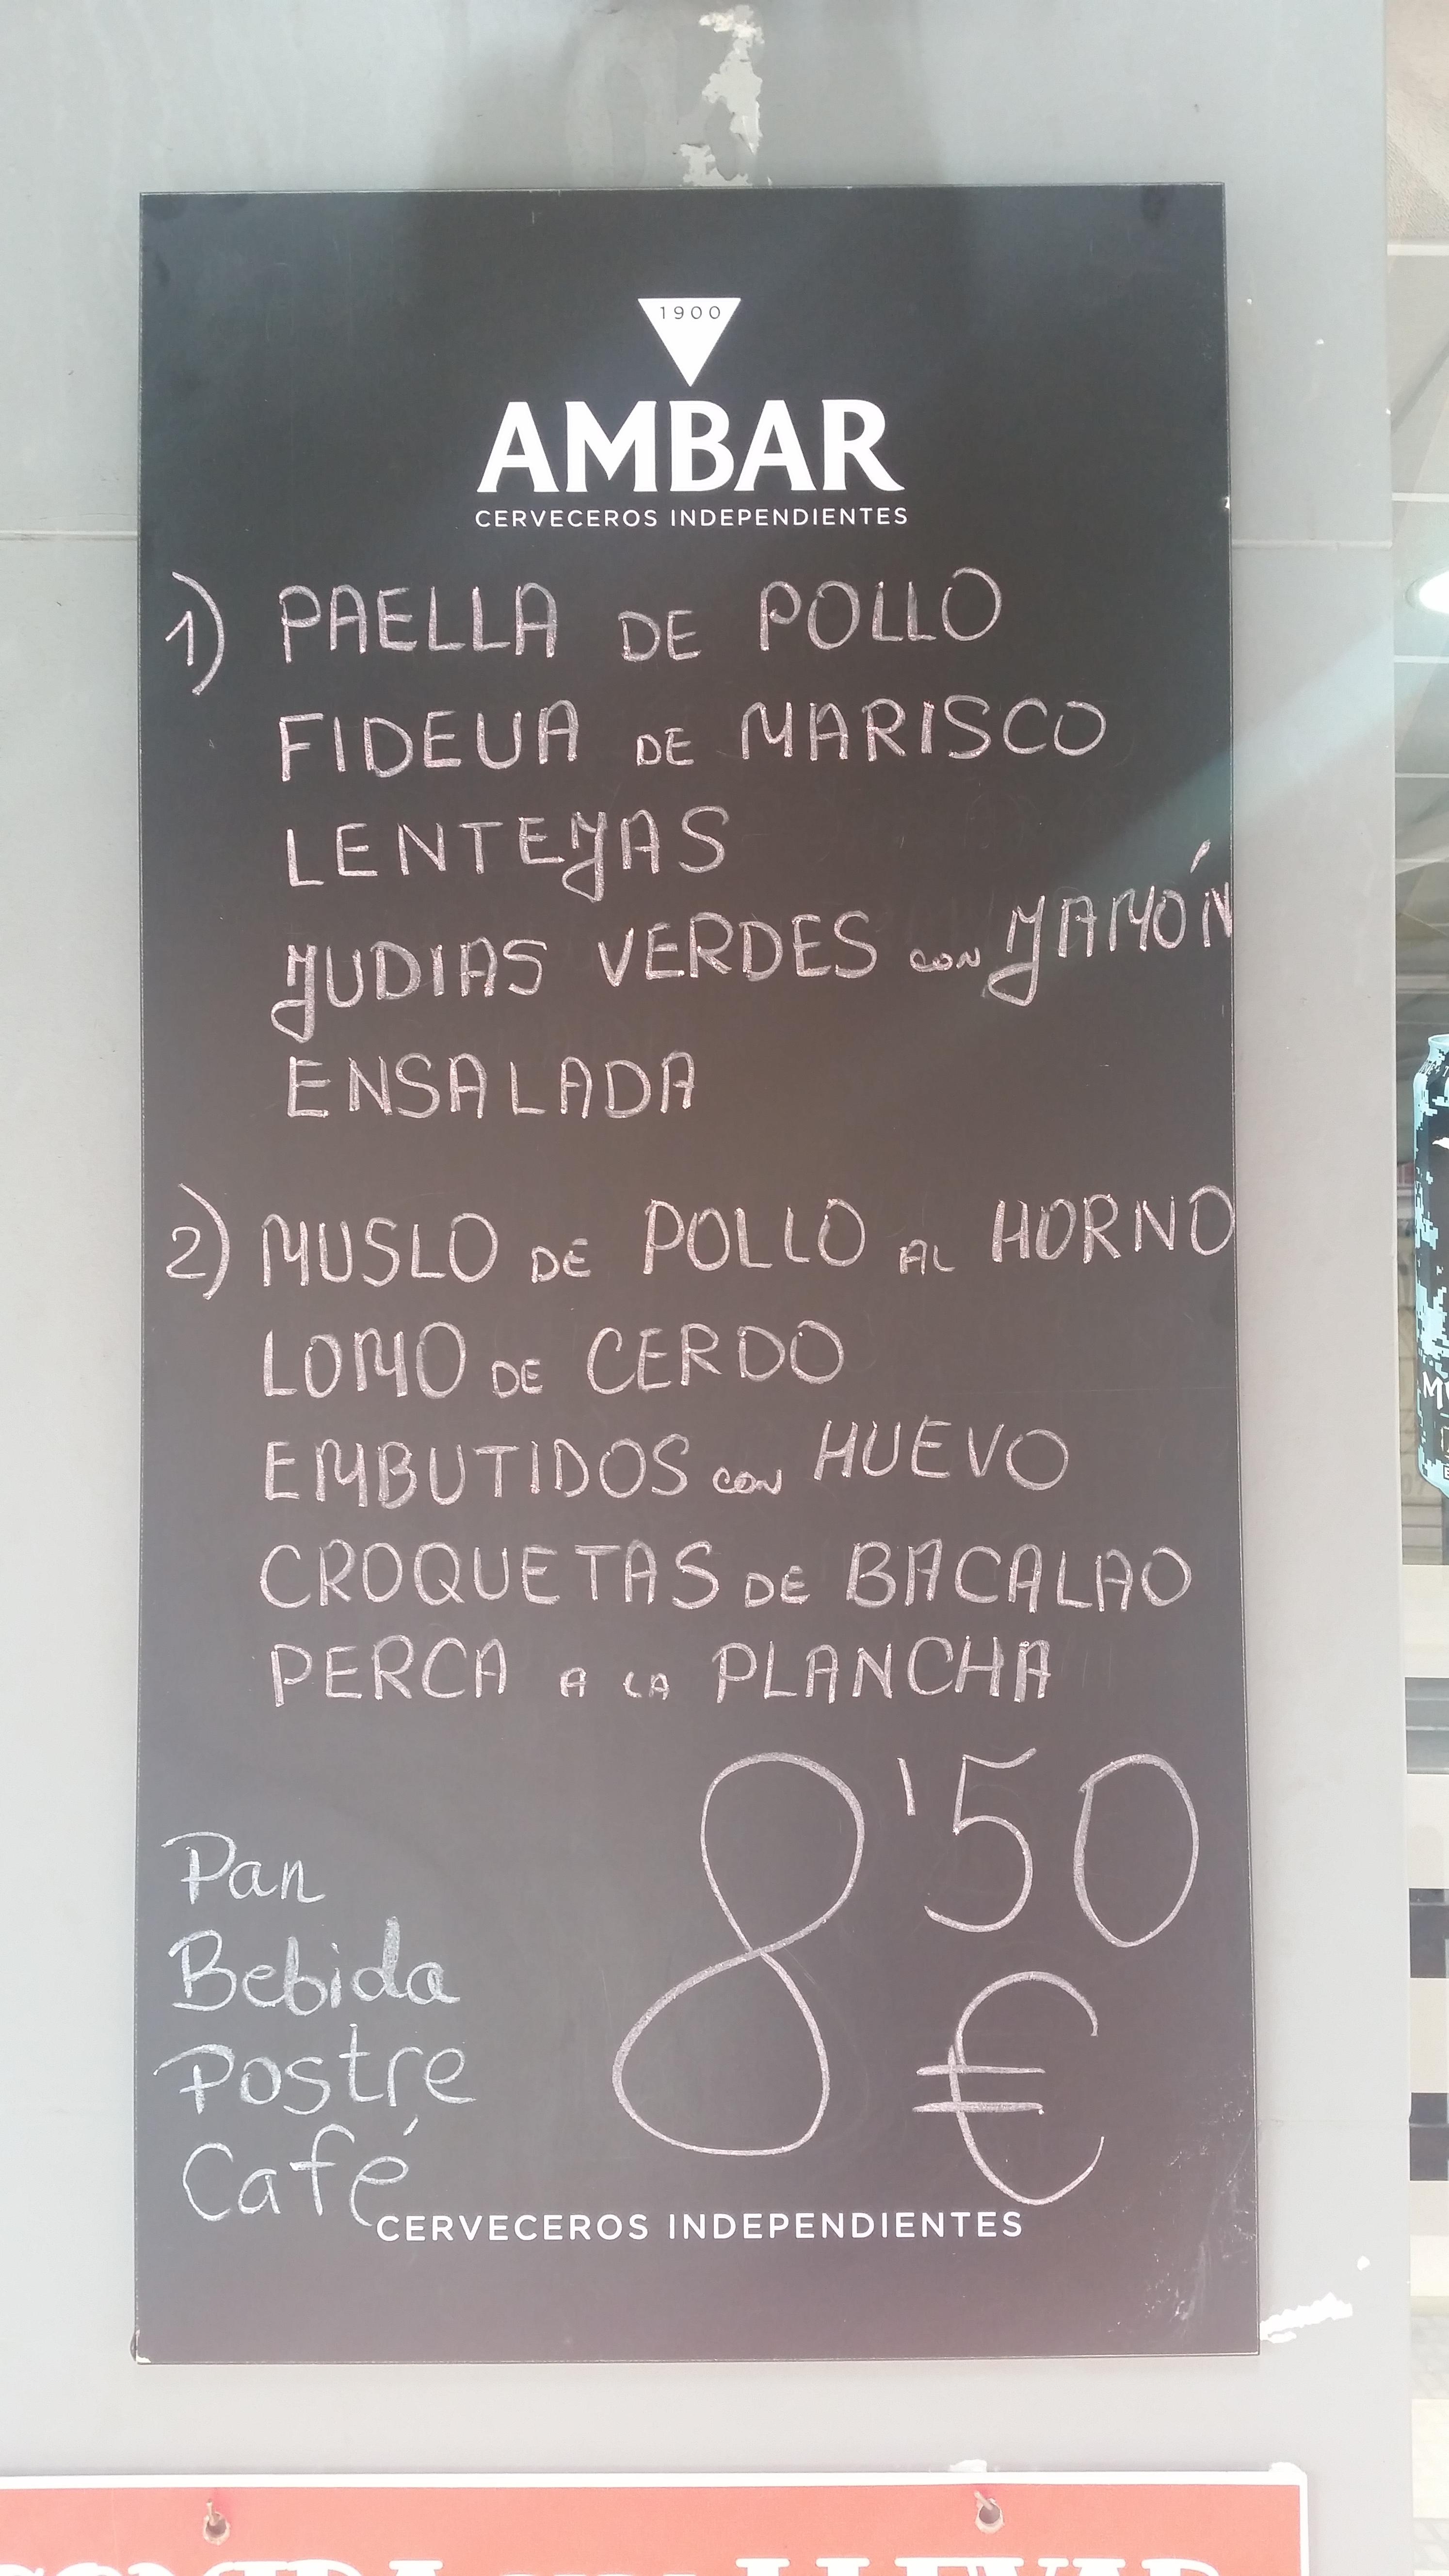 1900
AMBAR
CERVECEROS INDEPENDIENTES
1) PAELLA DE POLLO
FIDEUA DE MARISCO
LENTEJAS
JUDIAS VERDES con JAMÓN
ENSALADA
2) MUSLO DE POLLO AL HORNO
LOMO DE CERDO
EMBUTIDOS con HUEVO
CROQUETAS DE BACALAO
PERCA A LA PLANCHA
8'50
€
Pan
Bebida
Postre
Café
CERVECEROS INDEPENDIENTES